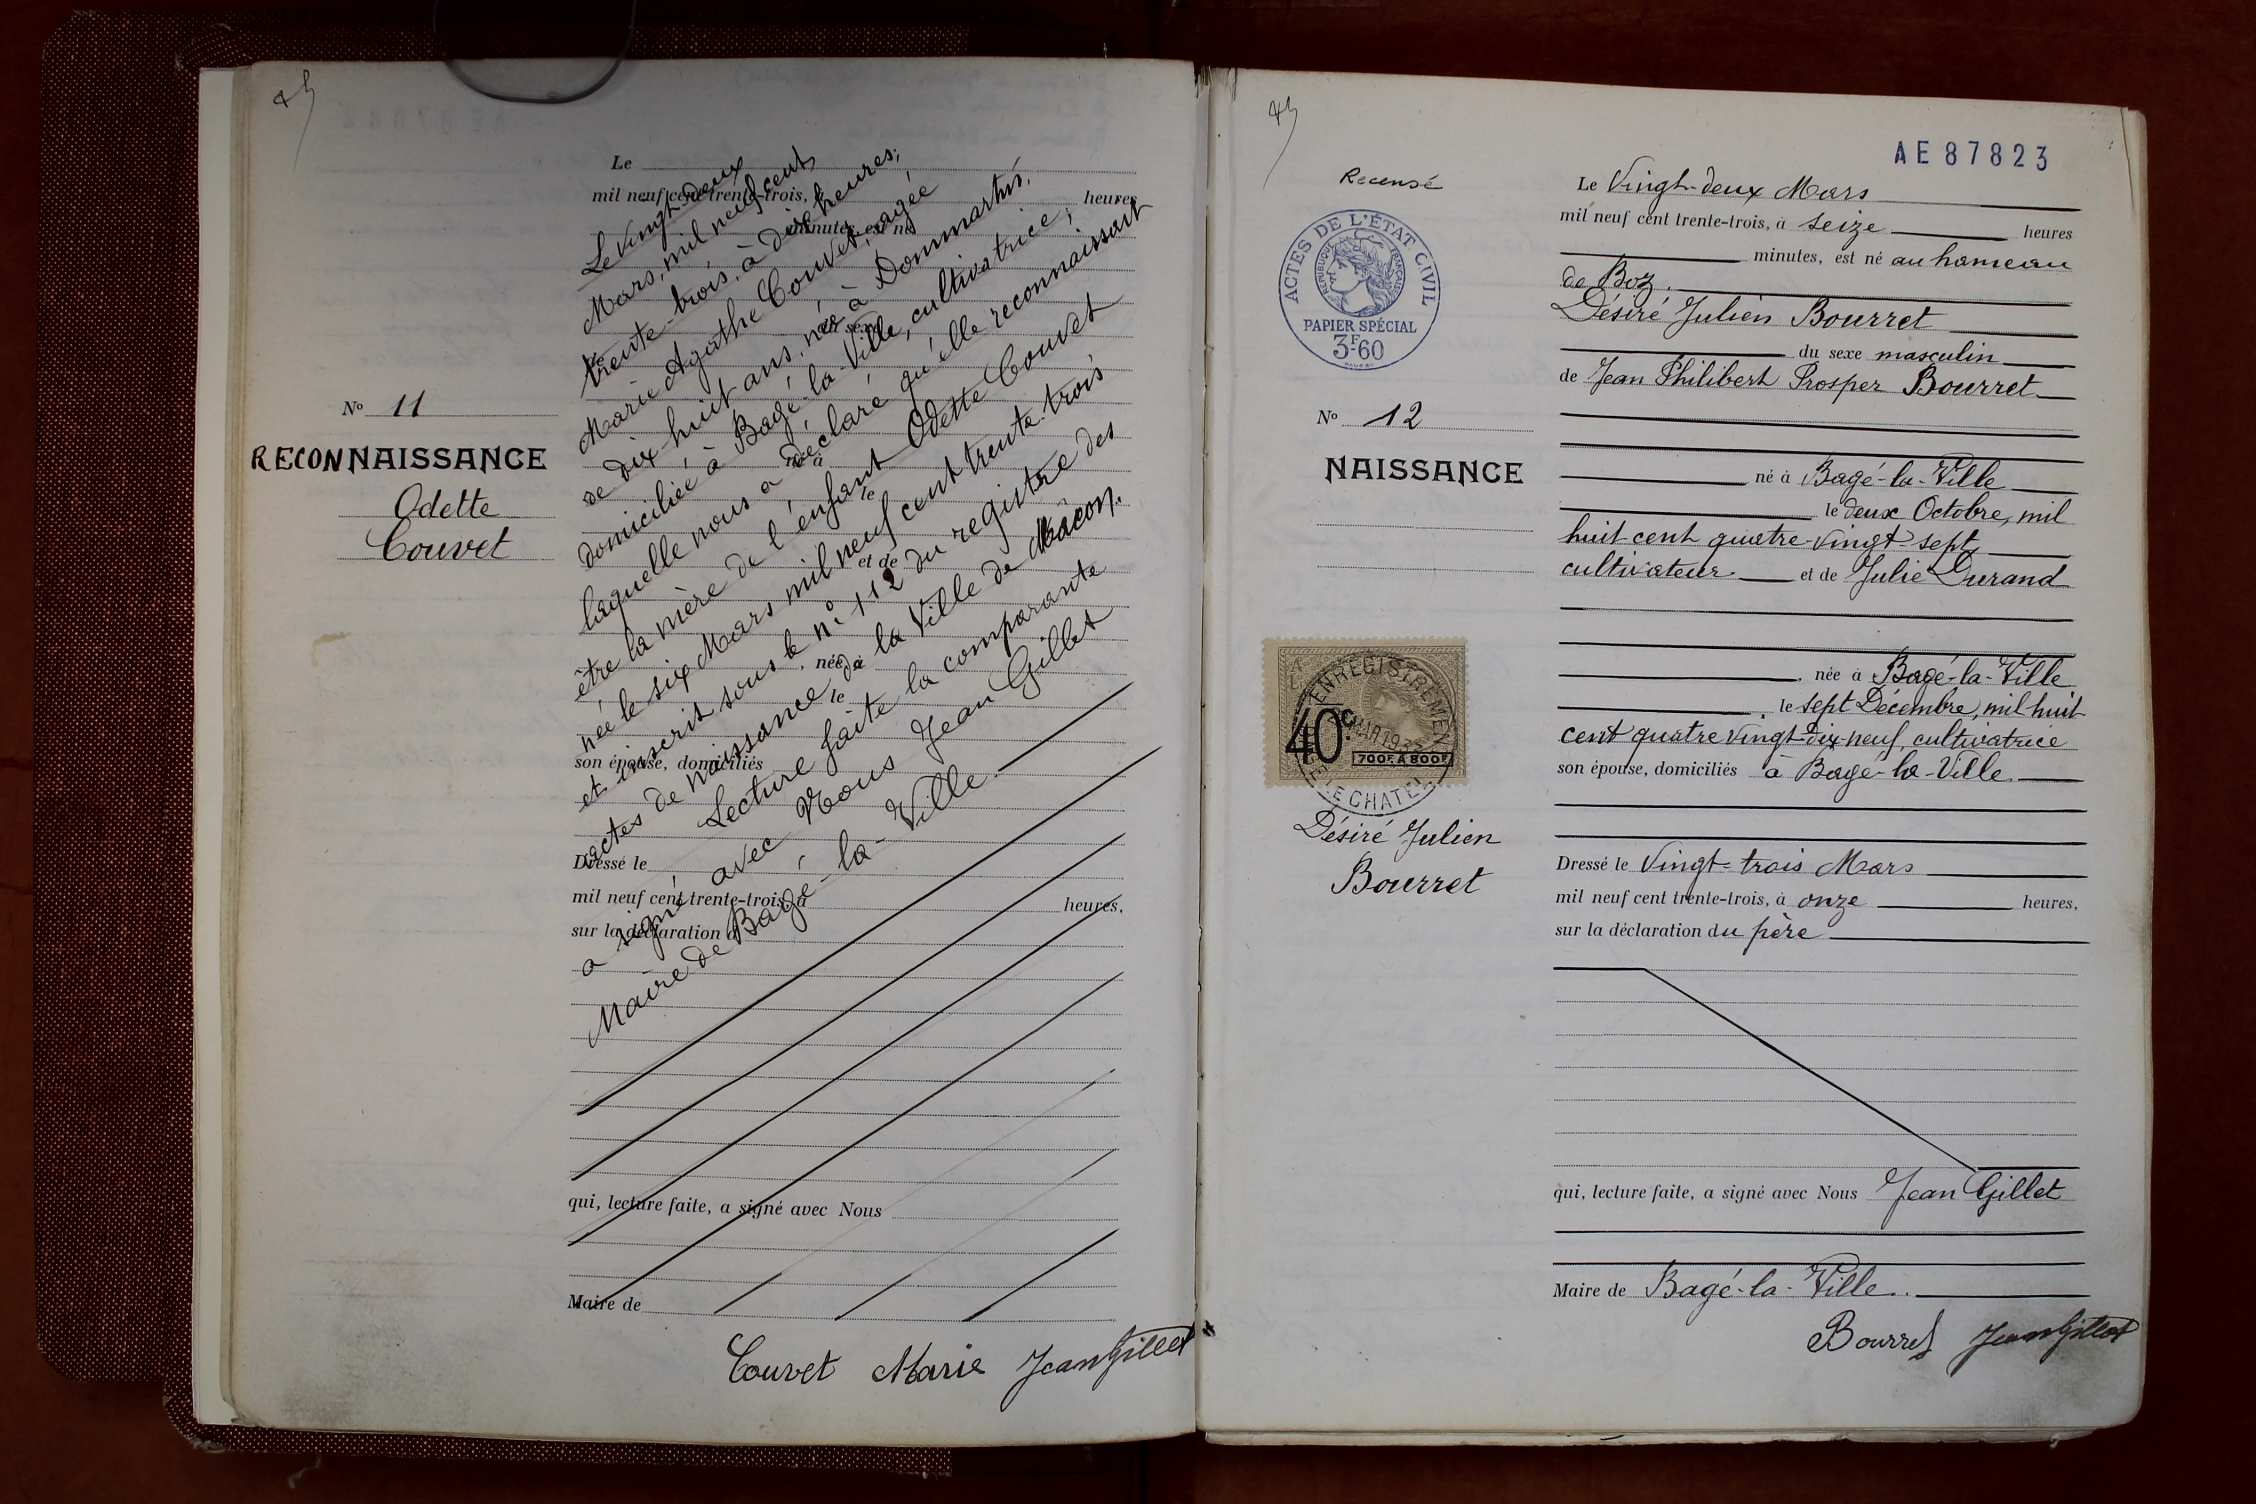 Le
mil neuf cent trente-trois, heures
minutes, est né
N° 11
RECONNAISSANCE
Odette
Couvet
Le vingt-deux
Mars, mil neuf cent
trente-trois, à dix heures;
Marie Agathe Couvet, agée
de dix-huit ans, née à Dommartin,
domiciliée à Bagé-la-Ville, cultivatrice;
laquelle nous a déclaré qu'elle reconnaissait
être la mère de l'enfant Odette Couvet
née le six Mars mil neuf cent trente-trois
et inscrit sous le n° 112 du registre des
actes de naissance de la Ville de Mâcon.
Lecture faite la comparante
a signé avec Nous Jean Gillet
Maire de Bagé-la-Ville
du sexe
né à
le
et de
née à
le
son épouse, domiciliés
Dressé le
mil neuf cent trente-trois, à heures,
sur la déclaration d
qui, lecture faite, a signé avec Nous
Maire de
Couvet Marie Jean Gillet
AE 87823
Recensé
ACTES DE L'ÉTAT CIVIL
REPUBLIQUE FRANÇAISE
PAPIER SPÉCIAL
3F60
N° 12
NAISSANCE
ENREGISTREMENT
40c
700F. A 800F.
LE CHATEL
Désiré Julien
Bourret
Le Vingt-deux Mars
mil neuf cent trente-trois, à seize heures
minutes, est né au hameau
de Boz.
Désiré Julien Bourret
du sexe masculin
de Jean Philibert Prosper Bourret
né à Bagé-la-Ville
le deux Octobre, mil
huit cent quatre-vingt-sept,
cultivateur et de Julie Durand
née à Bagé-la-Ville
le sept Décembre, mil huit
cent quatre vingt-dix-neuf, cultivatrice
son épouse, domiciliés à Bagé-la-Ville.
Dressé le Vingt-trois Mars
mil neuf cent trente-trois, à onze heures,
sur la déclaration du père
qui, lecture faite, a signé avec Nous Jean Gillet
Maire de Bagé-la-Ville.
Bourret Jean Gillet